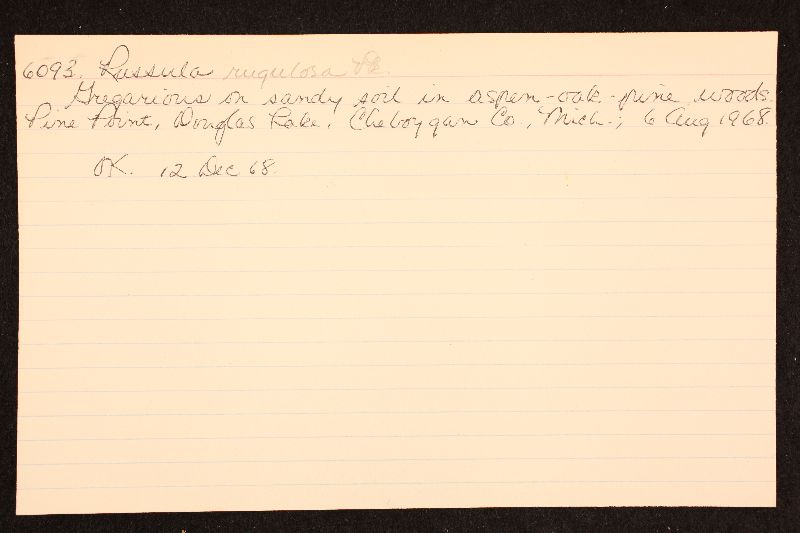 6093. Russula rugulosa Pk.
Gregarious on sandy soil in aspen-oak-pine woods.
Pine Point, Douglas Lake, Cheboygan Co., Mich.; 6 Aug 1968.
OK. 12 Dec 68.